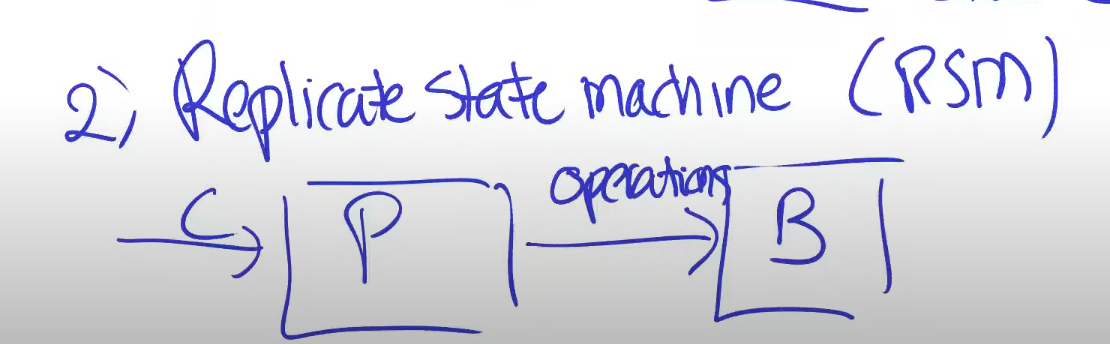 2) Replicate state machine (RSM)
operations
C P B